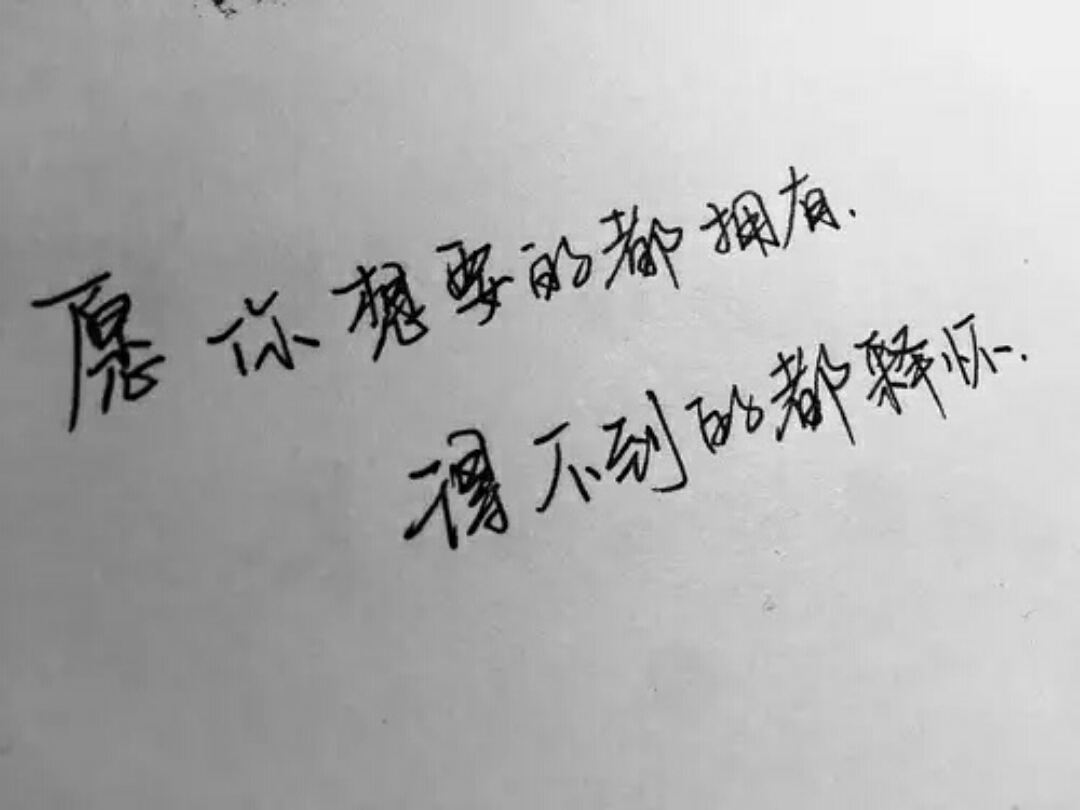 愿你想要的都拥有.
得不到的都释怀.